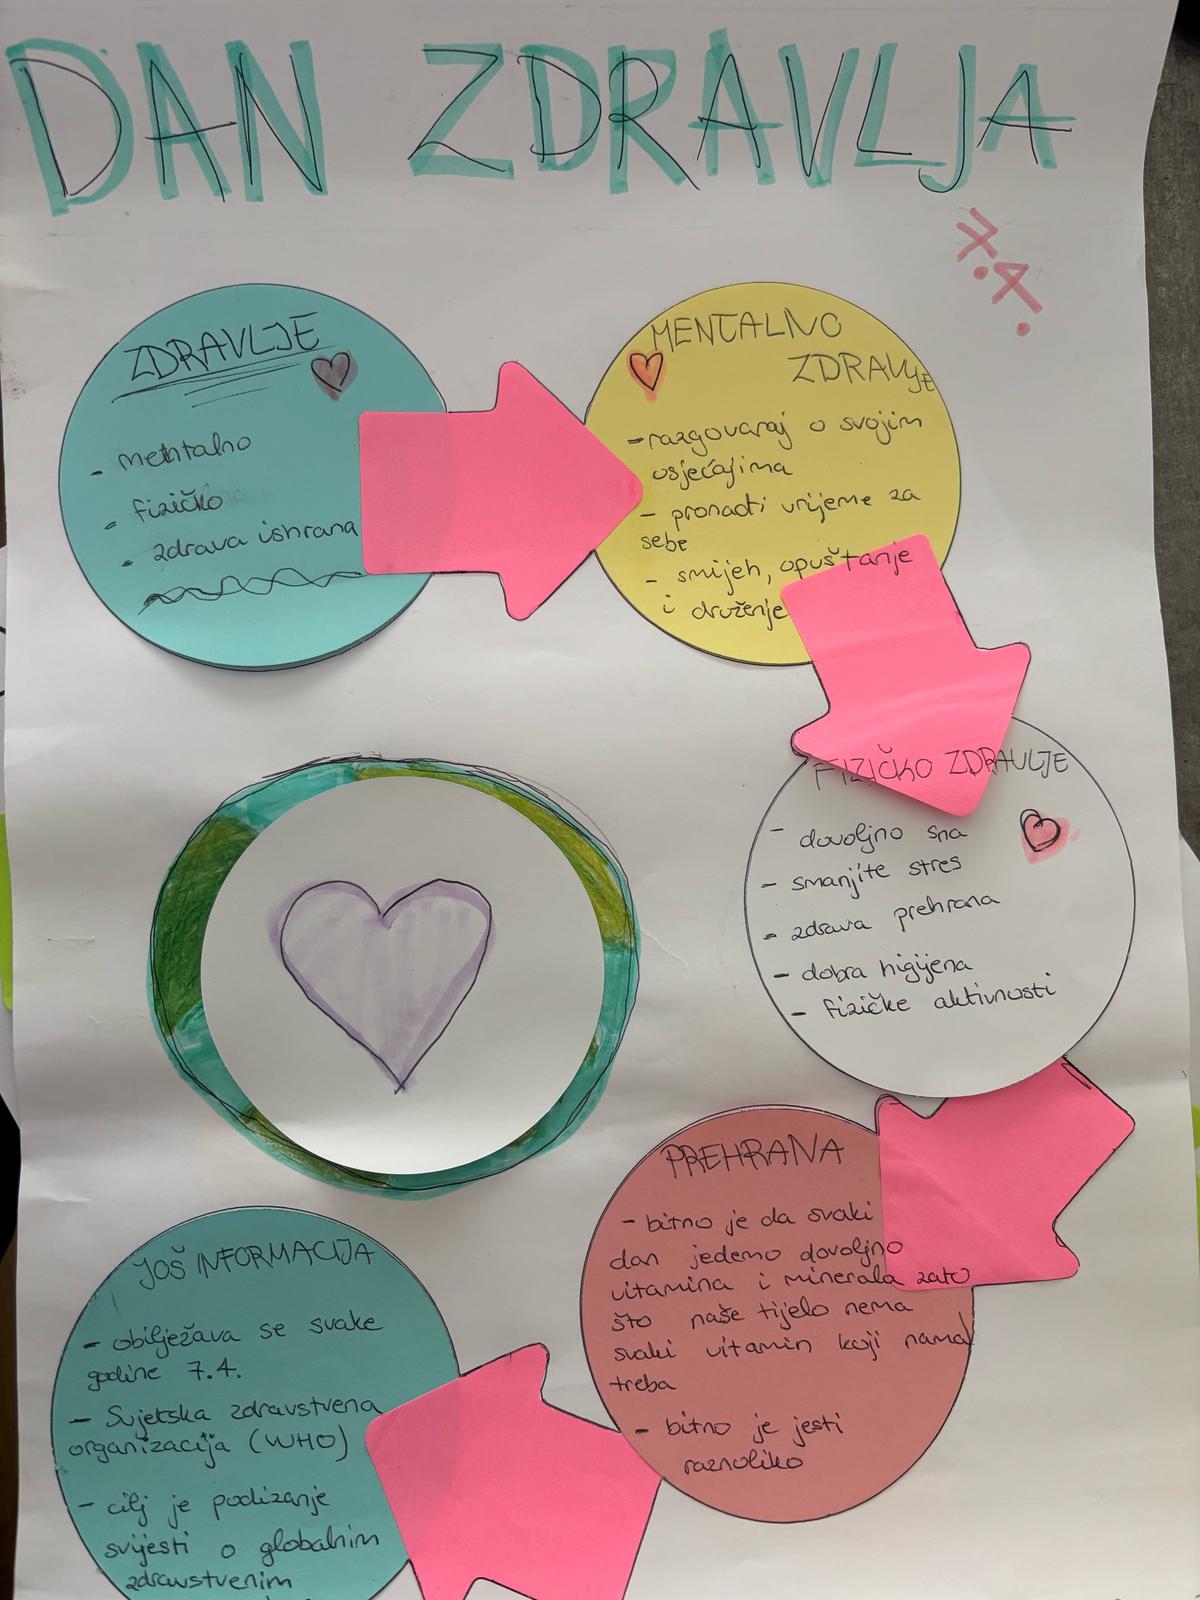 DAN ZDRAVLJA
7.4.
ZDRAVLJE
- mentalno
- fizičko
- zdrava ishrana
MENTALNO
ZDRAVLJE
- razgovaraj o svojim
osjećajima
- pronaći vrijeme za
sebe
- smijeh, opuštanje
i druženje
FIZIČKO ZDRAVLJE
- dovoljno sna
- smanjite stres
- zdrava prehrana
- dobra higijena
- fizičke aktivnosti
PREHRANA
- bitno je da svaki
dan jedemo dovoljno
vitamina i minerala zato
što naše tijelo nema
svaki vitamin koji nama
treba
- bitno je jesti
raznoliko
JOŠ INFORMACIJA
- obilježava se svake
godine 7.4.
- Svjetska zdravstvena
organizacija (WHO)
- cilj je podizanje
svijesti o globalnim
zdravstvenim